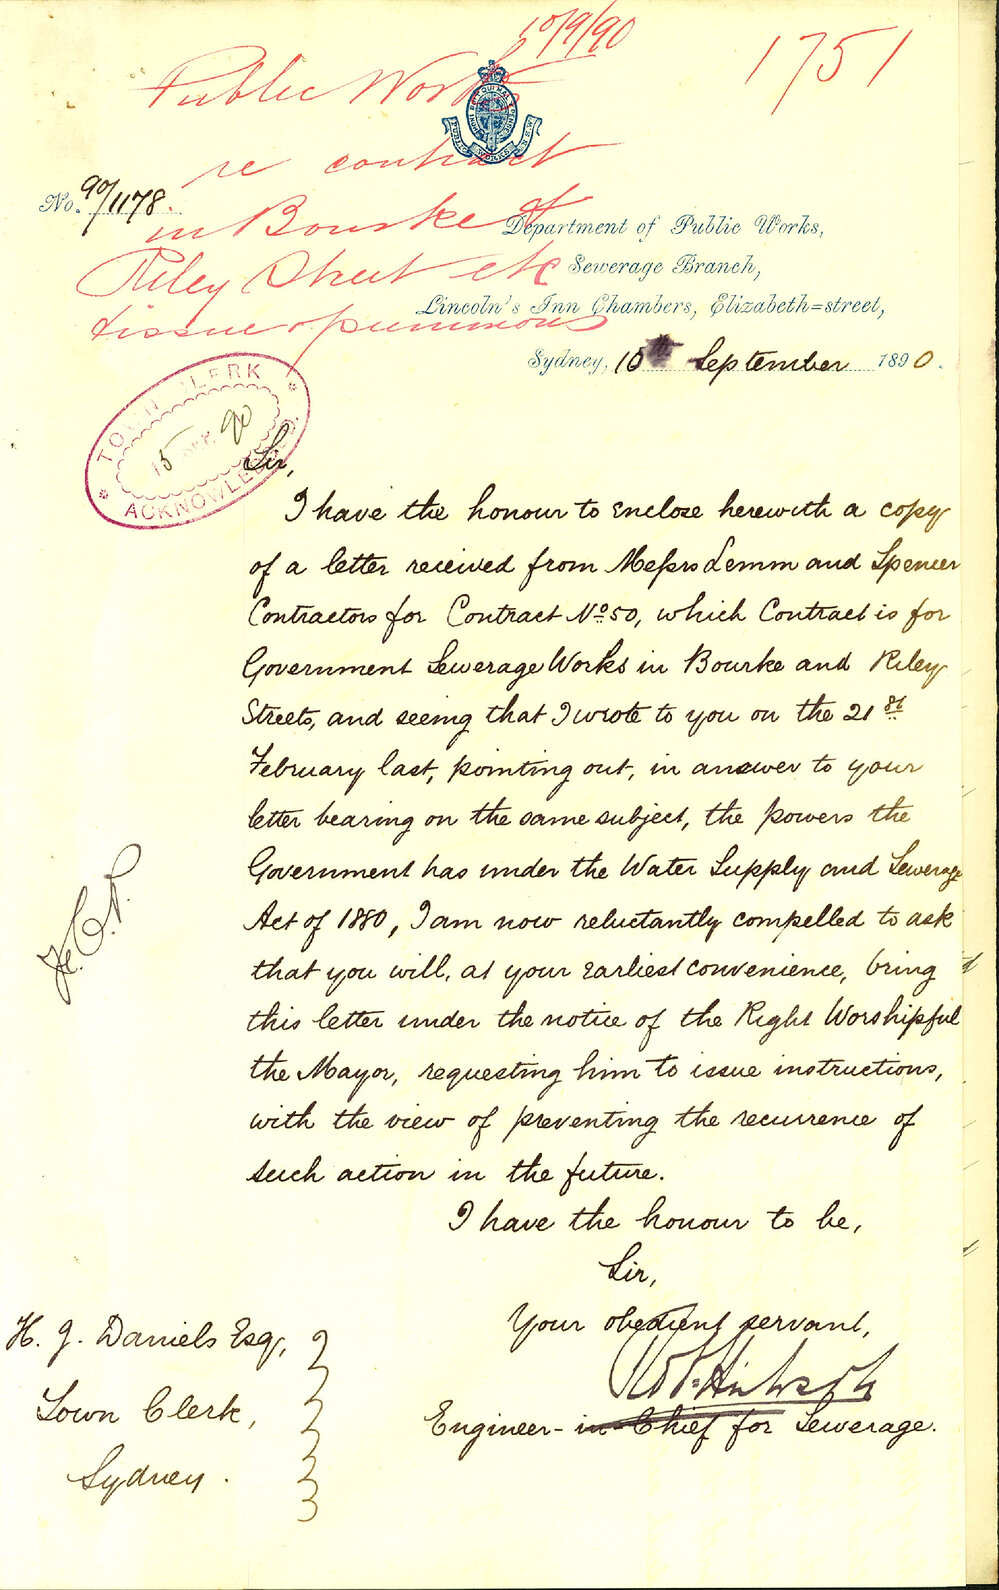 10/9/90
1751
Public Works
re contract
No. 90/1178.
in Bourke St
Department of Public Works,
Riley Street etc
Sewerage Branch,
Lincoln's Inn Chambers, Elizabeth=street,
tissue
Sydney, 10th September 1890.
TOWN CLERK
15 SEP. 90
ACKNOWLEDGED
Sir,
I have the honour to enclose herewith a copy
of a letter received from Messrs Lemm and Spencer
Contractors for Contract No 50, which Contract is for
Government Sewerage Works in Bourke and Riley
Streets, and seeing that I wrote to you on the 21st
February last, pointing out, in answer to your
letter bearing on the same subject, the powers the
Government has under the Water Supply and Sewerage
Act of 1880, I am now reluctantly compelled to ask
that you will, at your earliest convenience, bring
this letter under the notice of the Right Worshipful
the Mayor, requesting him to issue instructions,
with the view of preventing the recurrence of
such action in the future.
I have the honour to be,
Sir,
Your obedient servant,
Engineer-in Chief for Sewerage.
H. J. Daniels Esq,
Town Clerk,
Sydney.